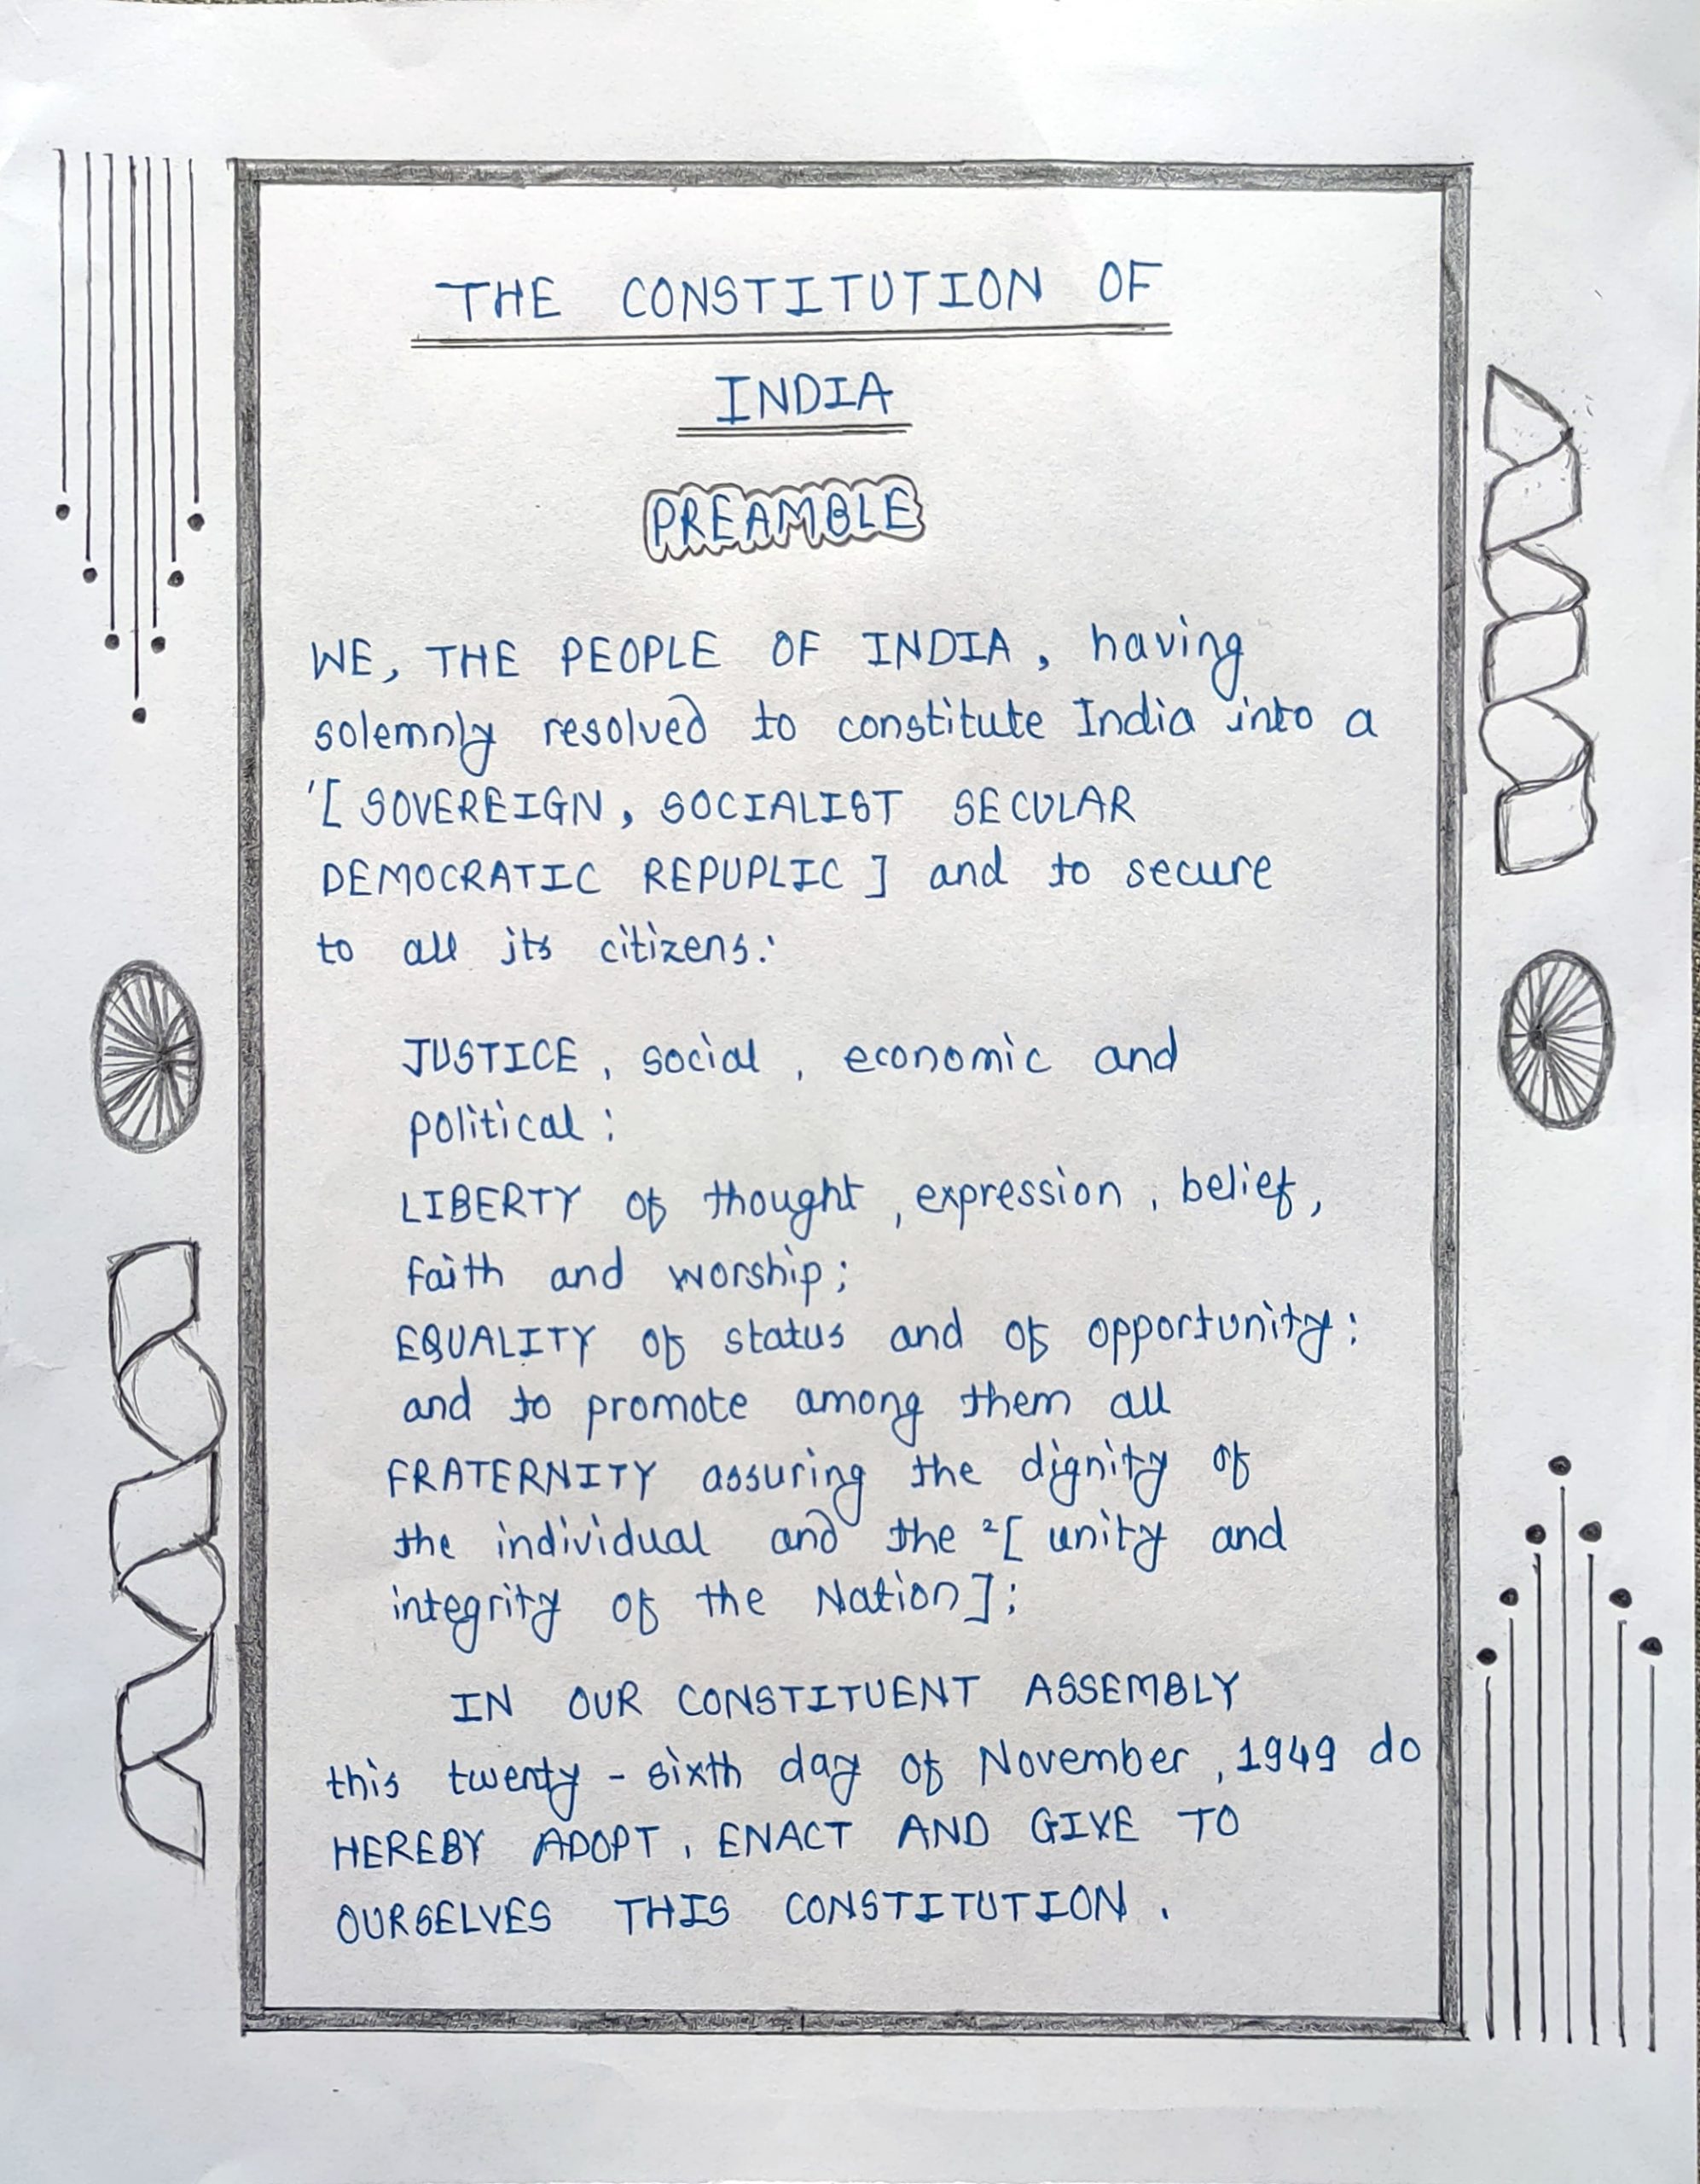 THE CONSTITUTION OF
INDIA
PREAMBLE
WE, THE PEOPLE OF INDIA, having
solemnly resolved to constitute India into a
'[ SOVEREIGN, SOCIALIST SECULAR
DEMOCRATIC REPUPLIC ] and to secure
to all its citizens:
JUSTICE, social, economic and
political:
LIBERTY of thought, expression, belief,
faith and worship;
EQUALITY of status and of opportunity:
and to promote among them all
FRATERNITY assuring the dignity of
the individual and the ²[ unity and
integrity of the Nation];
IN OUR CONSTITUENT ASSEMBLY
this twenty - sixth day of November, 1949 do
HEREBY ADOPT, ENACT AND GIVE TO
OURSELVES THIS CONSTITUTION.